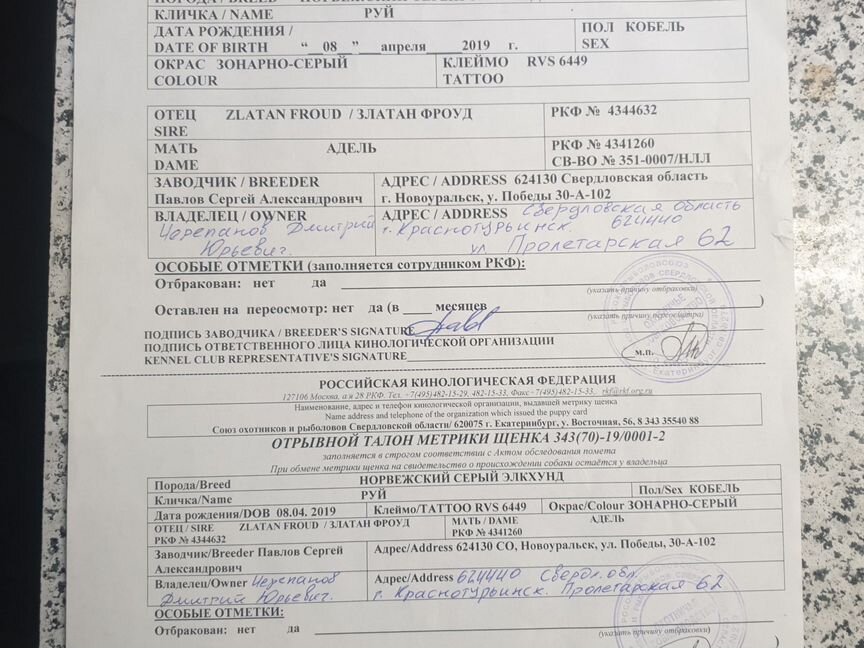 КЛИЧКА / NAME РУЙ
ДАТА РОЖДЕНИЯ /
DATE OF BIRTH “__08__” ___апреля_____2019 г.
ПОЛ КОБЕЛЬ
SEX
ОКРАС ЗОНАРНО-СЕРЫЙ
COLOUR
КЛЕЙМО RVS 6449
TATTOO
ОТЕЦ ZLATAN FROUD / ЗЛАТАН ФРОУД
SIRE
РКФ № 4344632
МАТЬ АДЕЛЬ
DAME
РКФ № 4341260
СВ-ВО № 351-0007/НЛЛ
ЗАВОДЧИК / BREEDER
Павлов Сергей Александрович
АДРЕС / ADDRESS 624130 Свердловская область
г. Новоуральск, у. Победы 30-А-102
ВЛАДЕЛЕЦ / OWNER
Черепанов Дмитрий
Юрьевич.
АДРЕС / ADDRESS Свердловская область
г. Краснотурьинск. 624440
ул Пролетарская 62
ОСОБЫЕ ОТМЕТКИ (заполняется сотрудником РКФ):
Отбракован: нет да
(указать причину отбраковки)
Оставлен на переосмотр: нет да (в ___ месяцев )
(указать причину переосмотра)
ПОДПИСЬ ЗАВОДЧИКА / BREEDER'S SIGNATURE
ПОДПИСЬ ОТВЕТСТВЕННОГО ЛИЦА КИНОЛОГИЧЕСКОЙ ОРГАНИЗАЦИИ
KENNEL CLUB REPRESENTATIVE'S SIGNATURE
м.п.
РОССИЙСКАЯ КИНОЛОГИЧЕСКАЯ ФЕДЕРАЦИЯ
127106 Москва, а/я 28 РКФ. Тел. +7(495)482-15-29, 482-15-33, Факс+7(495)482-15-33, rkf@rkf.org.ru
Наименование, адрес и телефон кинологической организации, выдавшей метрику щенка
Name address and telephone of the organization which issued the puppy card
Союз охотников и рыболовов Свердловской области/ 620075 г. Екатеринбург, у. Восточная, 56, 8 343 35540 88
ОТРЫВНОЙ ТАЛОН МЕТРИКИ ЩЕНКА 343(70)-19/0001-2
заполняется в строгом соответствии с Актом обследования помета
При обмене метрики щенка на свидетельство о происхождении собаки остаётся у владельца
Порода/Breed НОРВЕЖСКИЙ СЕРЫЙ ЭЛКХУНД
Кличка/Name РУЙ
Пол/Sex КОБЕЛЬ
Дата рождения/DOB 08.04. 2019
Клеймо/TATTOO RVS 6449
Окрас/Colour ЗОНАРНО-СЕРЫЙ
ОТЕЦ / SIRE ZLATAN FROUD / ЗЛАТАН ФРОУД
РКФ № 4344632
МАТЬ / DAME АДЕЛЬ
РКФ № 4341260
Заводчик/Breeder Павлов Сергей
Александрович
Адрес/Address 624130 СО, Новоуральск, ул. Победы, 30-А-102
Владелец/Owner Черепанов
Дмитрий Юрьевич.
Адрес/Address 624440 Свердл. обл.
г. Краснотурьинск. Пролетарская 62
ОСОБЫЕ ОТМЕТКИ:
Отбракован: нет да
(указать причину отбраковки)